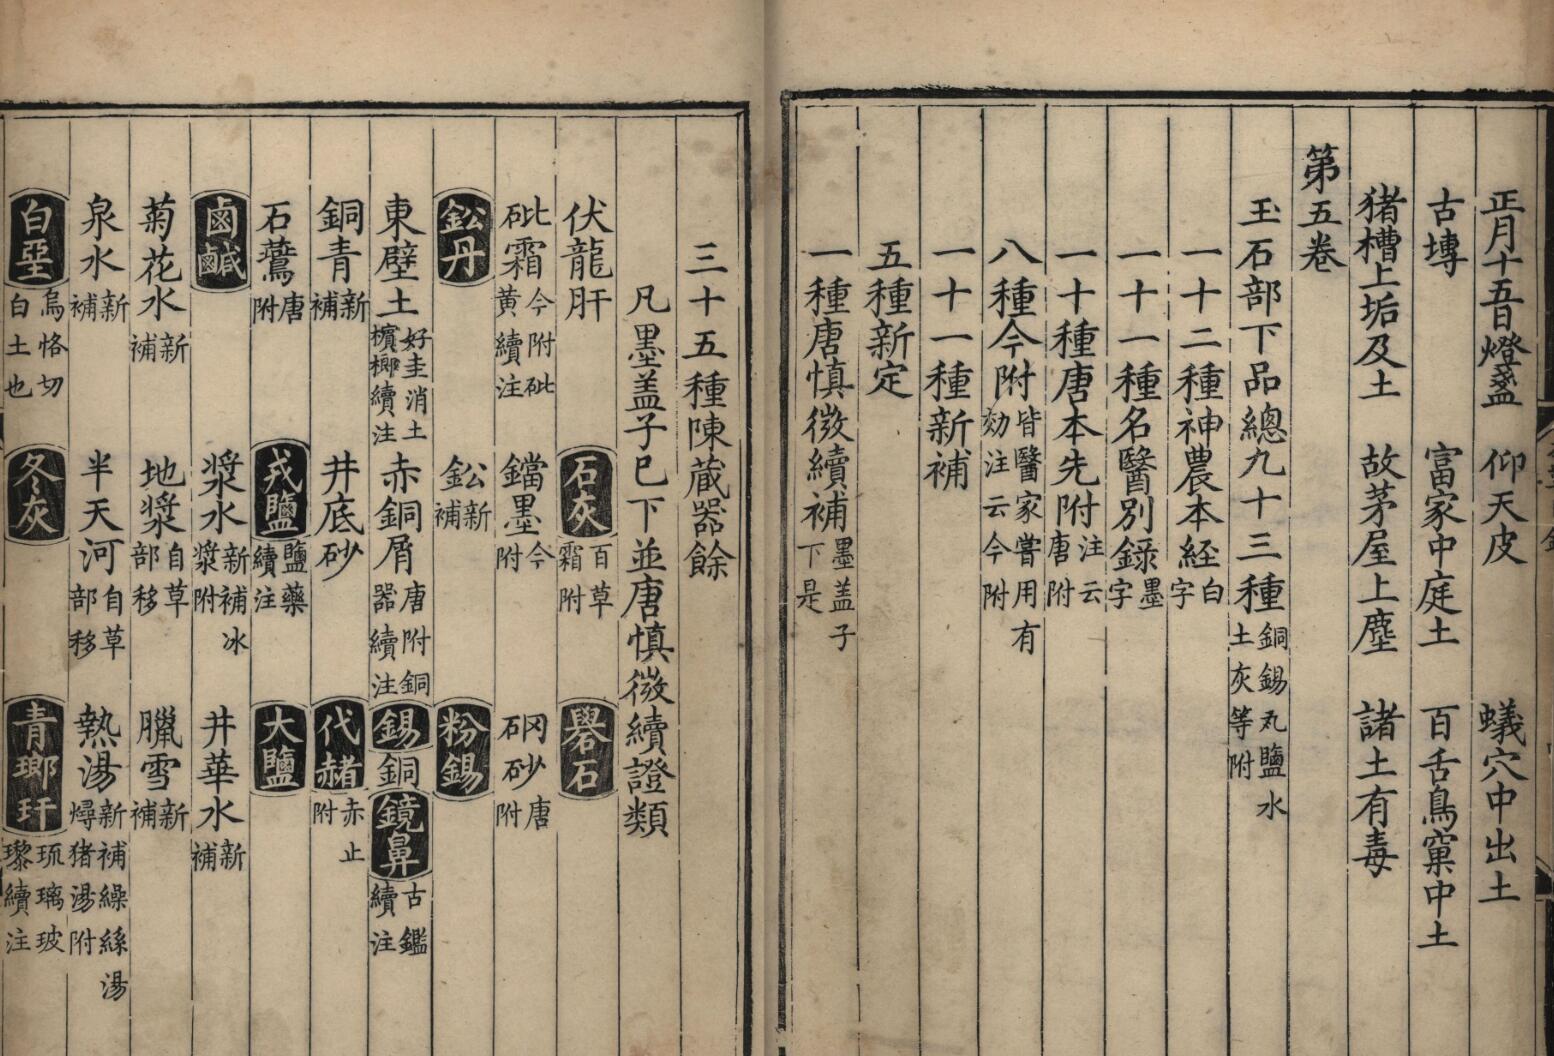 正月十五日燈盞　仰天皮　蟻穴中出土
古塼　富家中庭土　百舌鳥窠中土
猪槽上垢及土　故茅屋上塵　諸土有毒
第五卷
玉石部下品總九十三種銅錫丸鹽水土灰等附
一十二種神農本経白字
一十一種名醫別錄墨字
一十種唐本先附注云唐附
八種今附皆醫家嘗用有効注云今附
一十一種新補
五種新定
一種唐慎微續補墨盖子下是
三十五種陳蔵器餘
凡墨盖子已下並唐慎微續證類
伏龍肝　石灰百草霜附　礜石
砒霜今附砒黄續注　鐺墨今附　硇砂唐附
鈆丹　鈆新補　粉錫
東壁土好圭消土檳榔續注　赤銅屑唐附銅器續注　錫銅鏡鼻古鑑續注
銅青新補　井底砂　代赭赤土附
石鷰唐附　戎鹽鹽藥續注　大鹽
鹵鹹　漿水新補冰漿附　井華水新補
菊花水新補　地漿自草部移　臘雪新補
泉水新補　半天河自草部移　熱湯新補繰絲湯燖猪湯附
白堊烏恪切白土也　冬灰　青瑯玕琉璃玻瓈續注